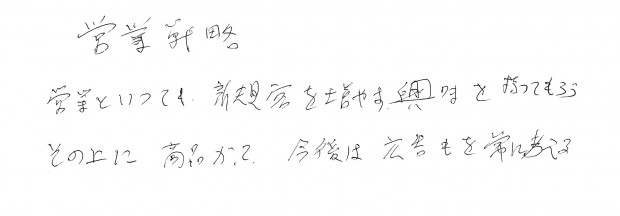 営業戦略
営業といっても、新規客を増やす、興味を持ってもらう
その上に 商品かって、今後は 広告もを常に考える